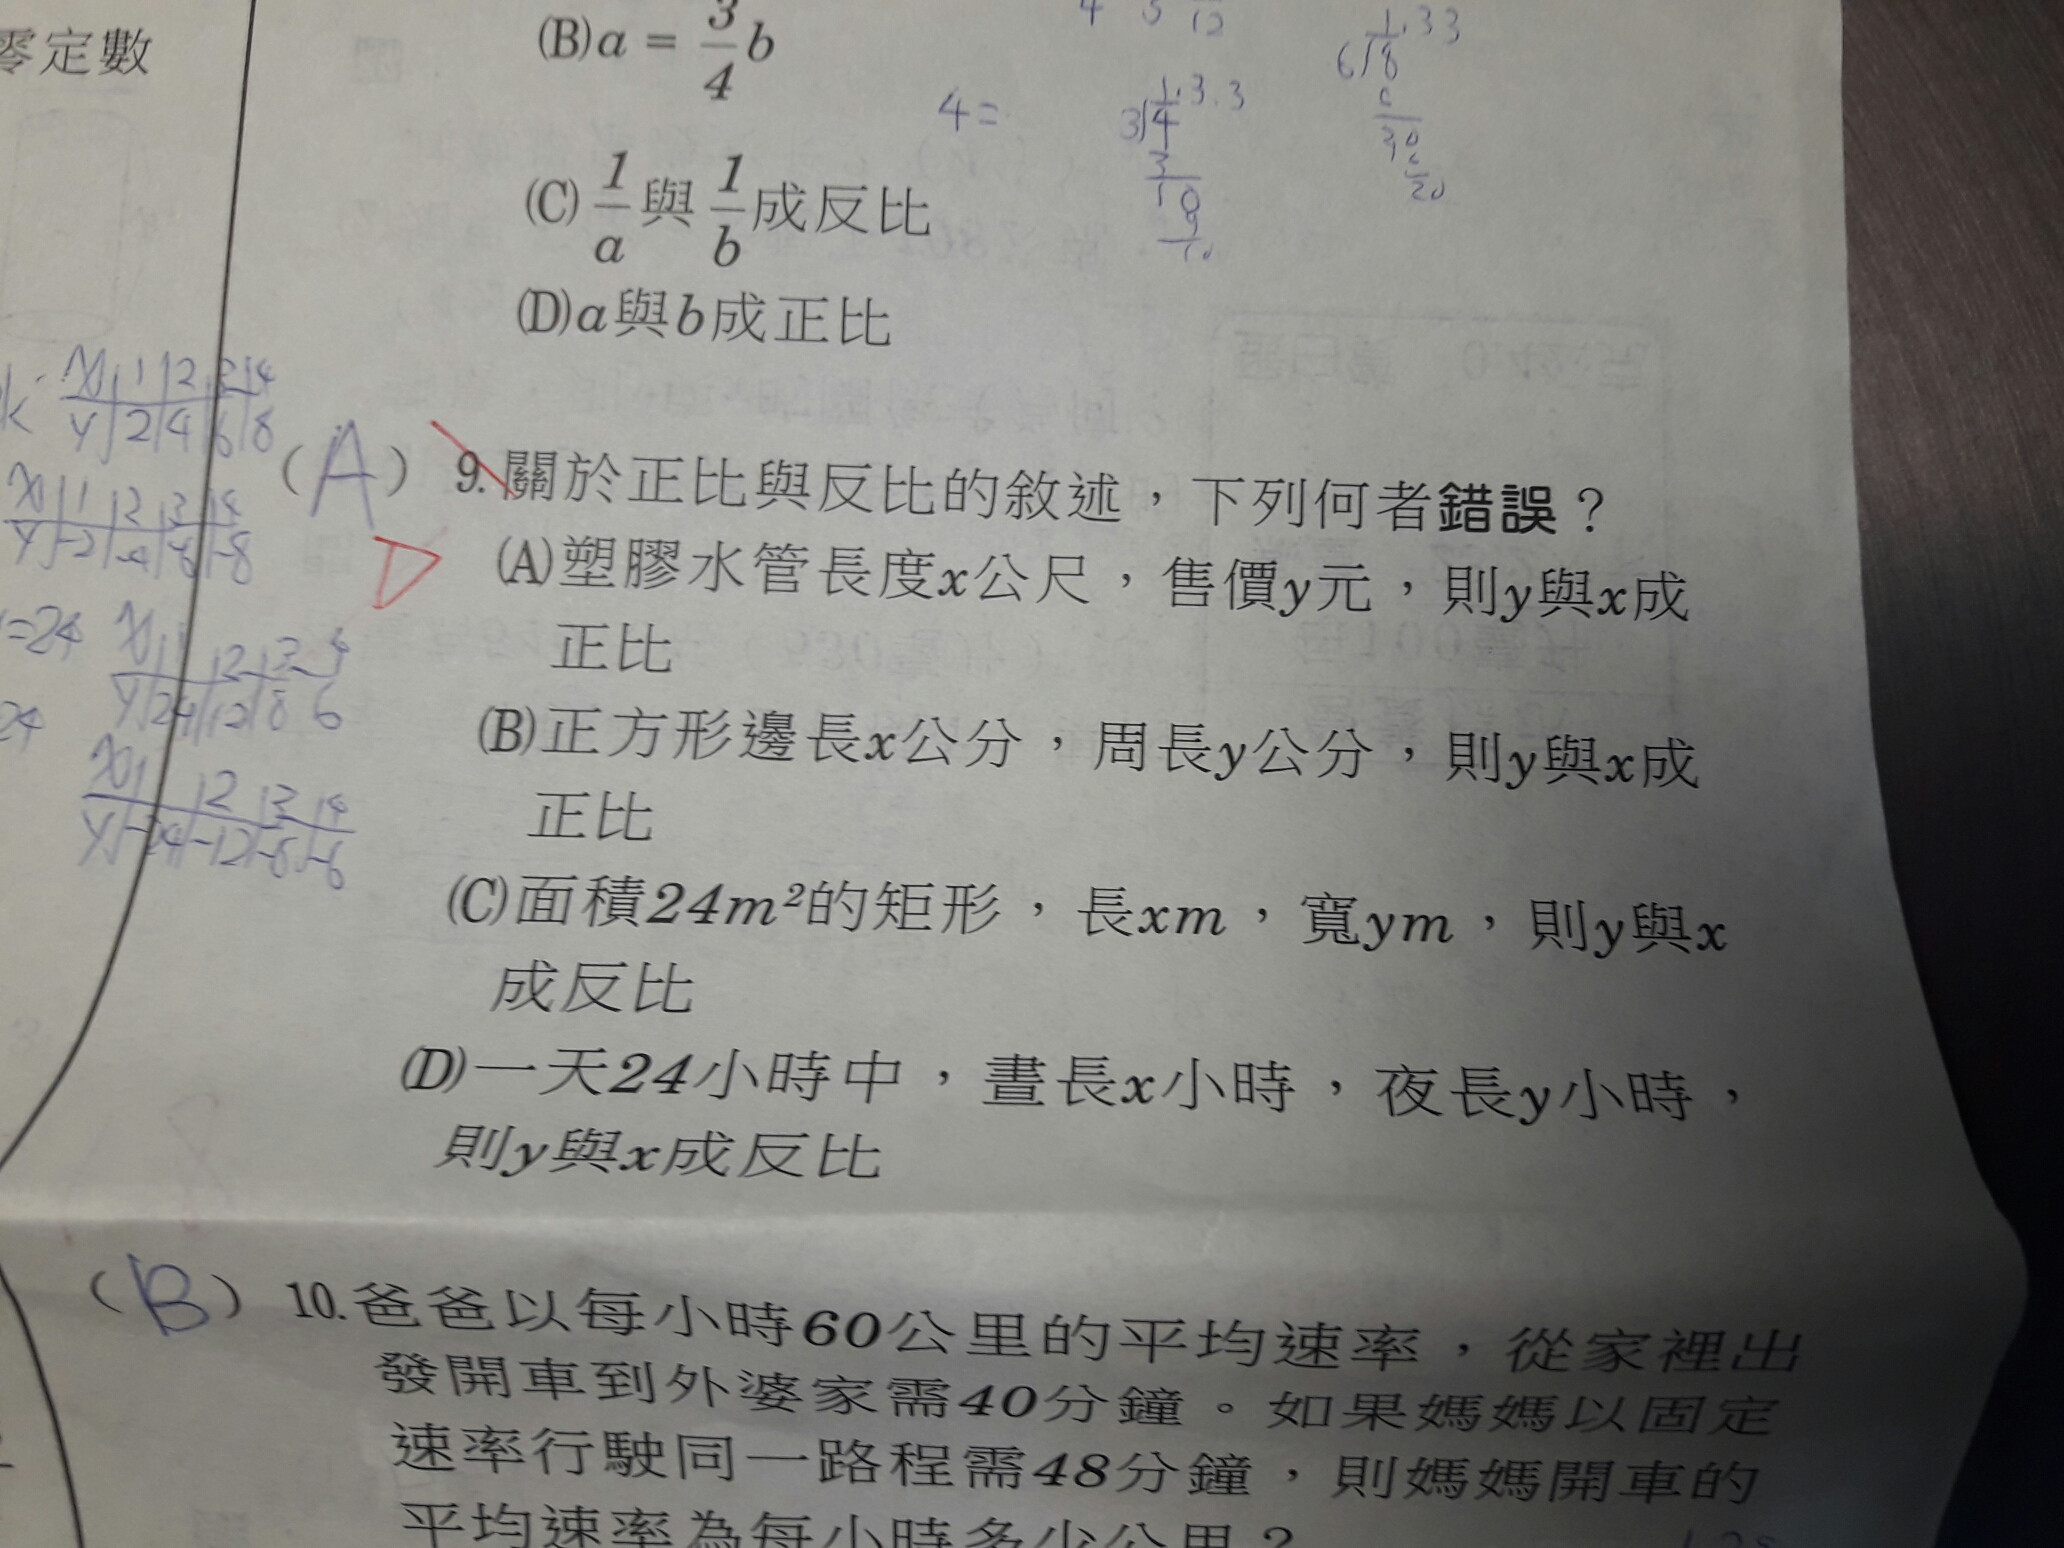 零定數
(B)a = 3/4 b
(C) 1/a 與 1/b 成反比
(D)a與b成正比
4=
1.33
3)4
3
10
9
10
1.33
6)8
20
x 1 2 3 4
y 2 4 6 8
x 1 2 3 4
y -2 -4 -6 -8
=24
x 1 2 3 4
y 24 12 8 6
24
x 1 2 3 4
y -24 -12 -8 -6
(A) 9.關於正比與反比的敘述，下列何者錯誤？
D
(A)塑膠水管長度x公尺，售價y元，則y與x成
正比
(B)正方形邊長x公分，周長y公分，則y與x成
正比
(C)面積24m²的矩形，長xm，寬ym，則y與x
成反比
(D)一天24小時中，晝長x小時，夜長y小時，
則y與x成反比
(B) 10.爸爸以每小時60公里的平均速率，從家裡出
發開車到外婆家需40分鐘。如果媽媽以固定
速率行駛同一路程需48分鐘，則媽媽開車的
平均速率為每小時多少公里？